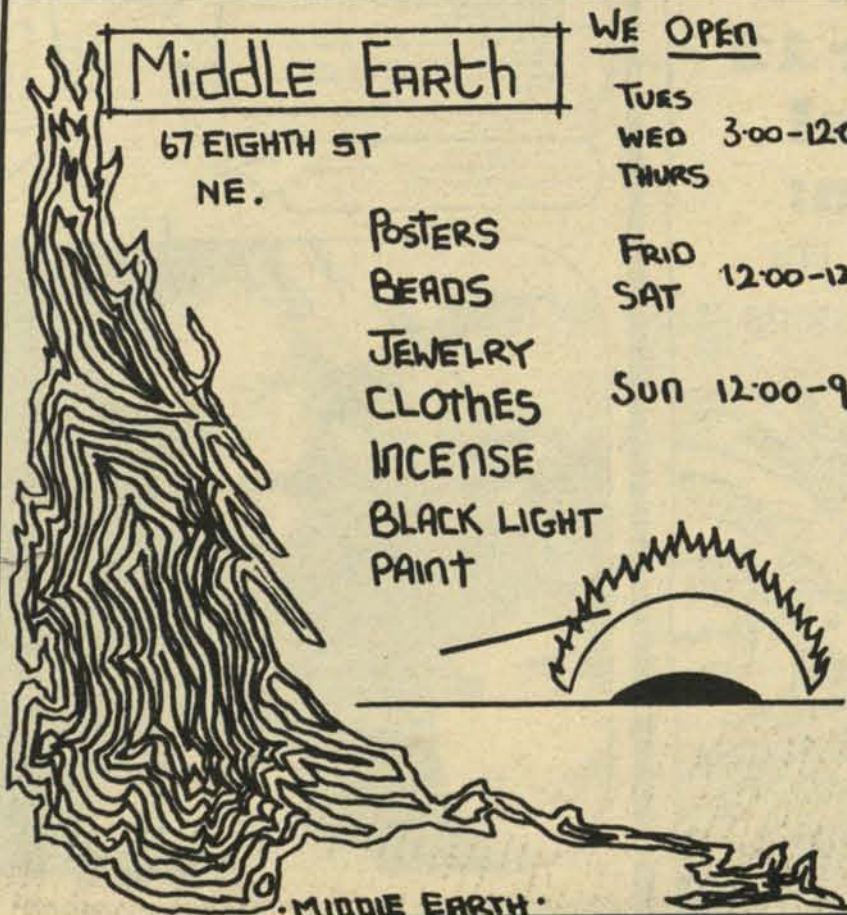 Middle Earth
67 EIGHTH ST
NE.
POSTERS
BEADS
JEWELRY
CLOTHES
INCENSE
BLACK LIGHT
PAINT
WE OPEN
TUES
WED 3·00-12
THURS
FRID
SAT 12·00-12
SUN 12·00-9
·MIDDLE EARTH·